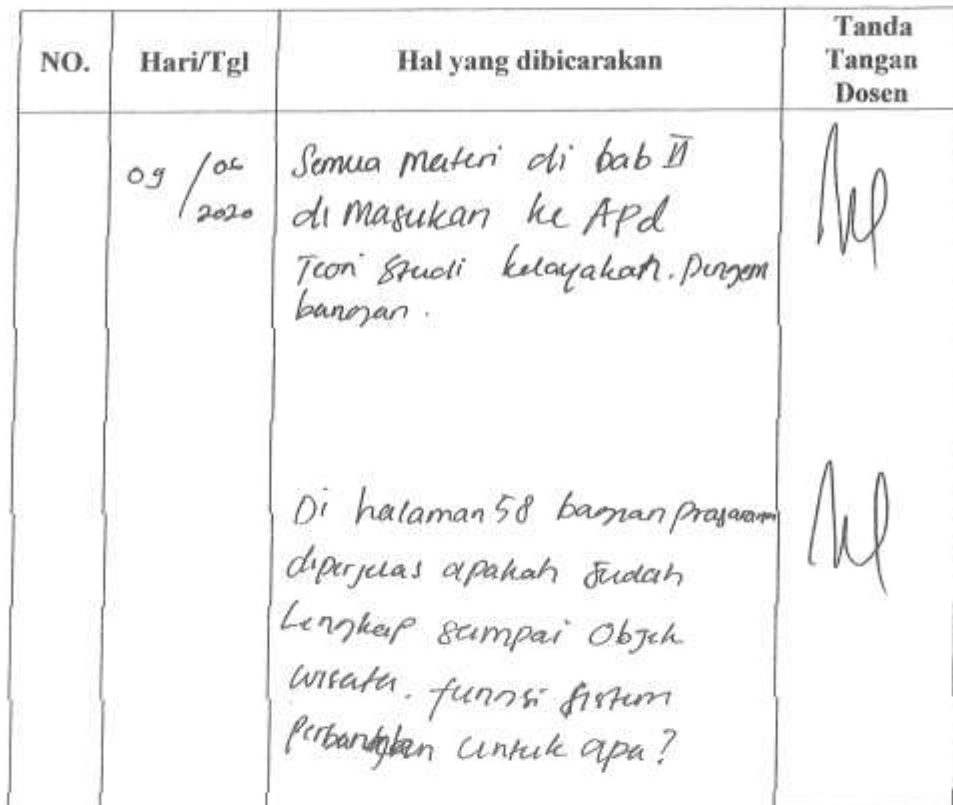 NO.
Hari/Tgl
Hal yang dibicarakan
Tanda
Tangan
Dosen
09 / 06
2020
Semua materi di bab II
di masukan ke APd
Teori studi kelayakan. Pengem
bangan.
Di halaman 58 bagian prasarana
diperjelas apakah sudah
Lengkap sampai Objek
wisata. fungsi sistem
untuk apa?